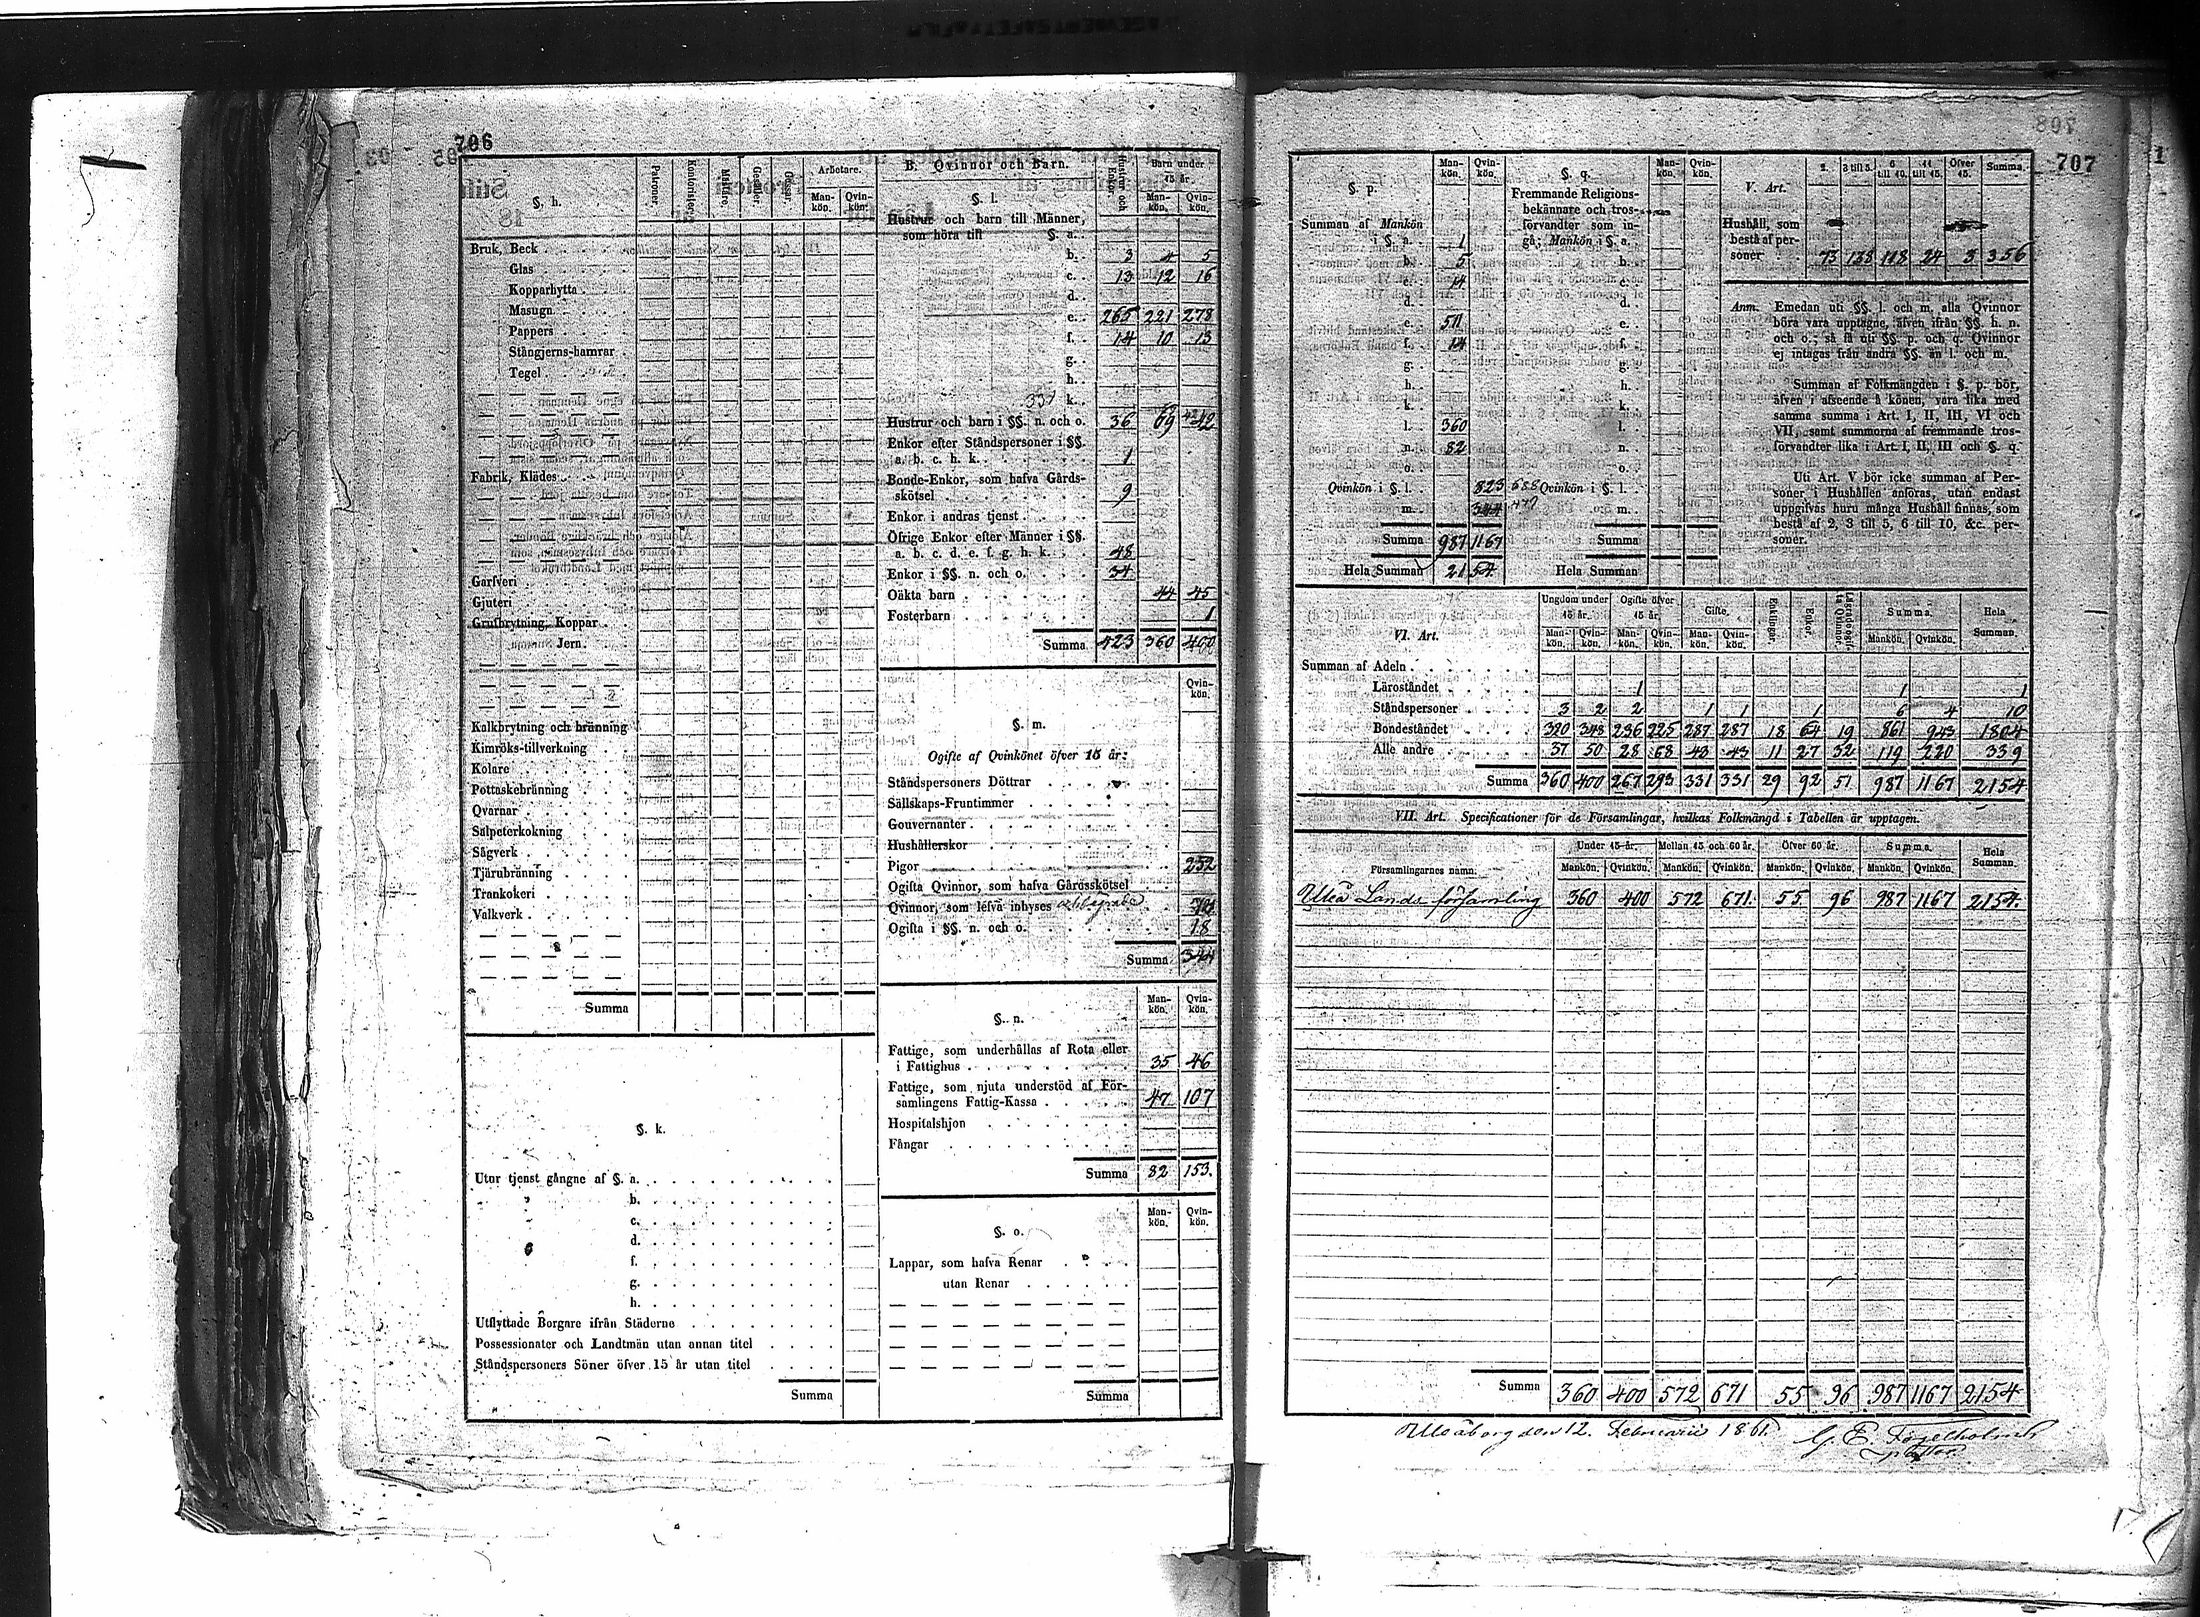 706
§. h.
Patroner. Kontorister. Mästare. Gesäller. Gossar. Arbetare. Mankön. Qvinkön.
Bruk, Beck
Glas
Kopparhytta
Masugn
Pappers
Stångjerns-hamrar
Tegel
Fabrik, Klädes
Garfveri
Gjuteri
Grufbrytning, Koppar
Jern
Kalkbrytning och bränning
Kimröks-tillverkning
Kolare
Pottaskebränning
Qvarnar
Salpeterkokning
Sågverk
Tjärubränning
Trankokeri
Valkverk
Summa
§. k.
Utur tjenst gångne af §. a.
b.
c.
d.
f.
g.
h.
Utflyttade Borgare ifrån Städerne
Possessionater och Landtmän utan annan titel
Ståndspersoners Söner öfver 15 år utan titel
Summa
B. Qvinnor och Barn. Hustrur och Enkor. Barn under 15 år. Mankön. Qvinkön.
§. l.
Hustrur och barn till Männer,
som höra till §. a.
b. 3 4 5
c. 13 12 16
d.
e. 265 221 278
f. 14 10 13
g.
h.
331 k.
Hustrur och barn i §§. n. och o. 36 69 42
Enkor efter Ståndspersoner i §§.
a. b. c. h. k. 1
Bonde-Enkor, som hafva Gårds-
skötsel 9
Enkor i andras tjenst
Öfrige Enkor efter Männer i §§.
a. b. c. d. e. f. g. h. k. 48
Enkor i §§. n. och o. 34
Oäkta barn 44 45
Fosterbarn 1
Summa 423 360 400
Qvinkön.
§. m.
Ogifte af Qvinkönet öfver 15 år:
Ståndspersoners Döttrar
Sällskaps-Fruntimmer
Gouvernanter
Hushållerskor
Pigor 252
Ogifta Qvinnor, som hafva Gårdsskötsel
Qvinnor, som lefva inhyses
Ogifta i §§. n. och o. 18
Summa 344
Mankön. Qvinkön.
§. n.
Fattige, som underhållas af Rota eller
i Fattighus 35 46
Fattige, som njuta understöd af För-
samlingens Fattig-Kassa 47 107
Hospitalshjon
Fångar
Summa 82 153.
Mankön. Qvinkön.
§. o.
Lappar, som hafva Renar
utan Renar
Summa
707
§. p. Mankön. Qvinkön.
Summan af Mankön
i §. a. 1
b. 5
c. 14
d.
e. 511
f. 14
g.
h.
k.
l. 360
n. 82
o.
Qvinkön i §. l. 823
m. 344
Summa 987 1167
Hela Summan 2154
§. q. Mankön. Qvinkön.
Fremmande Religions-
bekännare och tros-
förvandter som in-
gå; Mankön i §. a.
b.
c.
d.
e.
f.
g.
h.
k.
l.
n.
o.
Qvinkön i §. l.
m.
Summa
Hela Summan
V. Art. 2. 3 till 5. 6 till 10. 11 till 15. Öfver 15. Summa.
Hushåll, som
bestå af per-
soner 73 138 118 24 3 356
Anm. Emedan uti §§. l. och m. alla Qvinnor
böra vara upptagne, äfven ifrån §§. h. n.
och o.; så få uti §§. p. och q. Qvinnor
ej intagas från andra §§. än l. och m.
Summan af Folkmängden i §. p. bör,
äfven i afseende å könen, vara lika med
samma summa i Art. I, II, III, VI och
VII, samt summorna af fremmande tros-
förvandter lika i Art. I, II, III och §. q.
Uti Art. V bör icke summan af Per-
soner i Hushållen anföras, utan endast
uppgifvas huru många Hushåll finnas, som
bestå af 2, 3 till 5, 6 till 10, &c. per-
soner.
VI. Art. Ungdom under 15 år. Ogifte öfver 15 år. Gifte. Enklingar. Enkor. Summa. Hela Summan.
Mankön. Qvinkön. Mankön. Qvinkön. Mankön. Qvinkön. Mankön. Qvinkön.
Summan af Adeln
Läroståndet 1 1 1
Ståndspersoner 3 2 2 1 1 1 6 4 10
Bondeståndet 320 348 236 225 287 287 18 64 19 861 943 1804
Alle andre 37 50 28 68 43 43 11 27 32 119 220 339
Summa 360 400 267 293 331 331 29 92 51 987 1167 2154
VII. Art. Specificationer för de Församlingar, hvilkas Folkmängd i Tabellen är upptagen.
Församlingarnes namn. Under 15 år. Mellan 15 och 60 år. Öfver 60 år. Summa. Hela Summan.
Mankön. Qvinkön. Mankön. Qvinkön. Mankön. Qvinkön. Mankön. Qvinkön.
Uleå Lands församling 360 400 572 671 55 96 987 1167 2154.
Summa 360 400 572 671 55 96 987 1167 2154
Uleåborg den 12. Februarii 1861. G. E. Fogelholm
pastor.